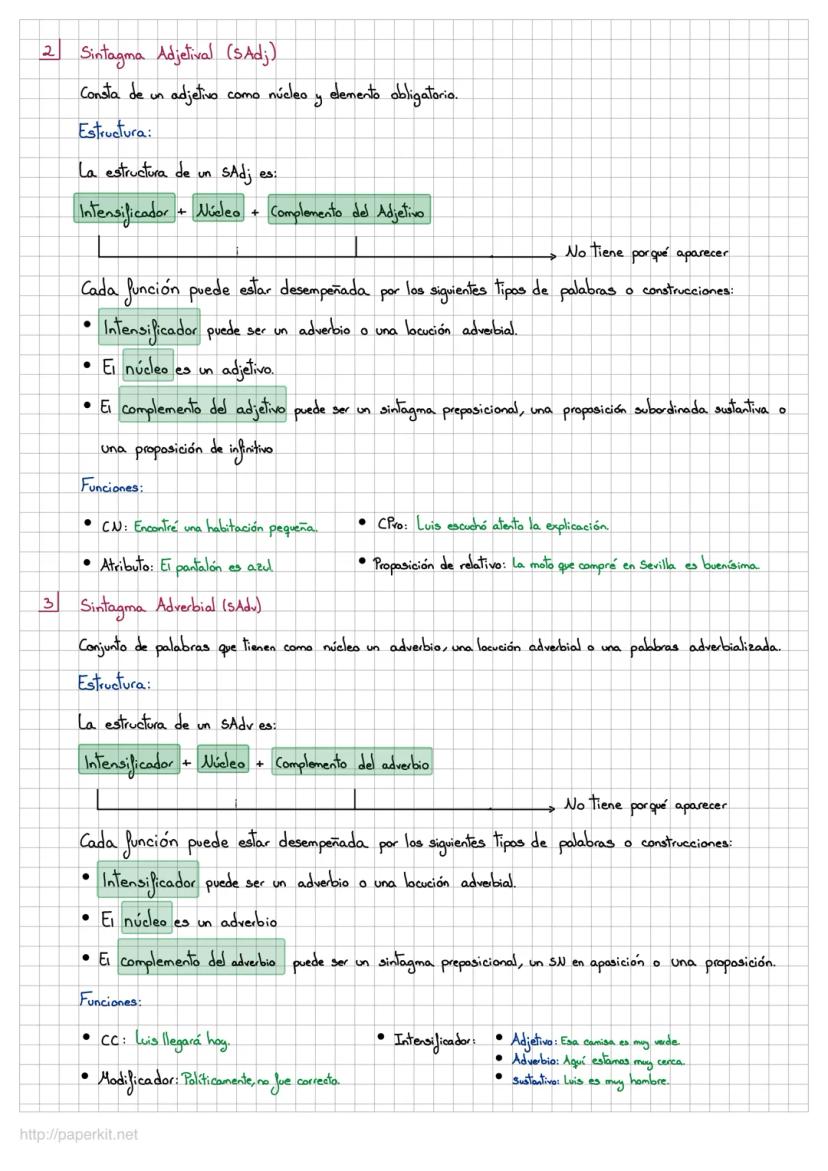 2 Sintagma Adjetival (SAdj)
Consta de un adjetivo como núcleo y elemento obligatorio.
Estructura:
La estructura de un SAdj es:
Intensificador + Núcleo + Complemento del Adjetivo
No tiene porqué aparecer
Cada función puede estar desempeñada por los siguientes tipos de palabras o construcciones:
• Intensificador puede ser un adverbio o una locución adverbial.
• El núcleo es un adjetivo.
• El complemento del adjetivo puede ser un sintagma preposicional, una proposición subordinada sustantiva o
una proposición de infinitivo
Funciones:
• CN: Encontré una habitación pequeña.
• CPvo: Luis escuchó atento la explicación.
• Atributo: El pantalón es azul
• Proposición de relativo: La moto que compré en Sevilla es buenísima.
3 Sintagma Adverbial (SAdv)
Conjunto de palabras que tienen como núcleo un adverbio, una locución adverbial o una palabras adverbializada.
Estructura:
La estructura de un SAdv es:
Intensificador + Núcleo + Complemento del adverbio
No tiene porqué aparecer
Cada función puede estar desempeñada por los siguientes tipos de palabras o construcciones:
• Intensificador puede ser un adverbio o una locución adverbial.
• El núcleo es un adverbio
• El complemento del adverbio puede ser un sintagma preposicional, un SN en aposición o una proposición.
Funciones:
• CC: Luis llegará hoy.
• Intensificador:
• Adjetivo: Esa camisa es muy verde.
• Adverbio: Aquí estamos muy cerca.
• Sustantivo: Luis es muy hombre.
• Modificador: Políticamente, no fue correcto.
http://paperkit.net